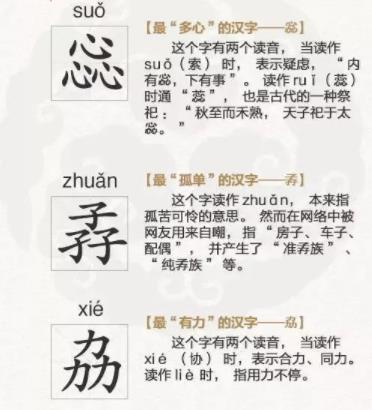 suǒ
惢
【最“多心”的汉字——惢】
这个字有两个读音，当读作
suǒ（索）时，表示疑虑，“内
有惢，下有事”。读作ruǐ（蕊）
时通“蕊”，也是古代的一种祭
祀：“秋至而禾熟，天子祀于太
惢。”
zhuǎn
孨
【最“孤单”的汉字——孨】
这个字读作zhuǎn，本来指
孤苦可怜的意思。然而在网络中被
网友用来自嘲，指“房子、车子、
配偶”，并产生了“准孨族”、
“纯孨族”等。
xié
劦
【最“有力”的汉字——劦】
这个字有两个读音，当读作
xié（协）时，表示合力、同力。
读作liè时，指用力不停。